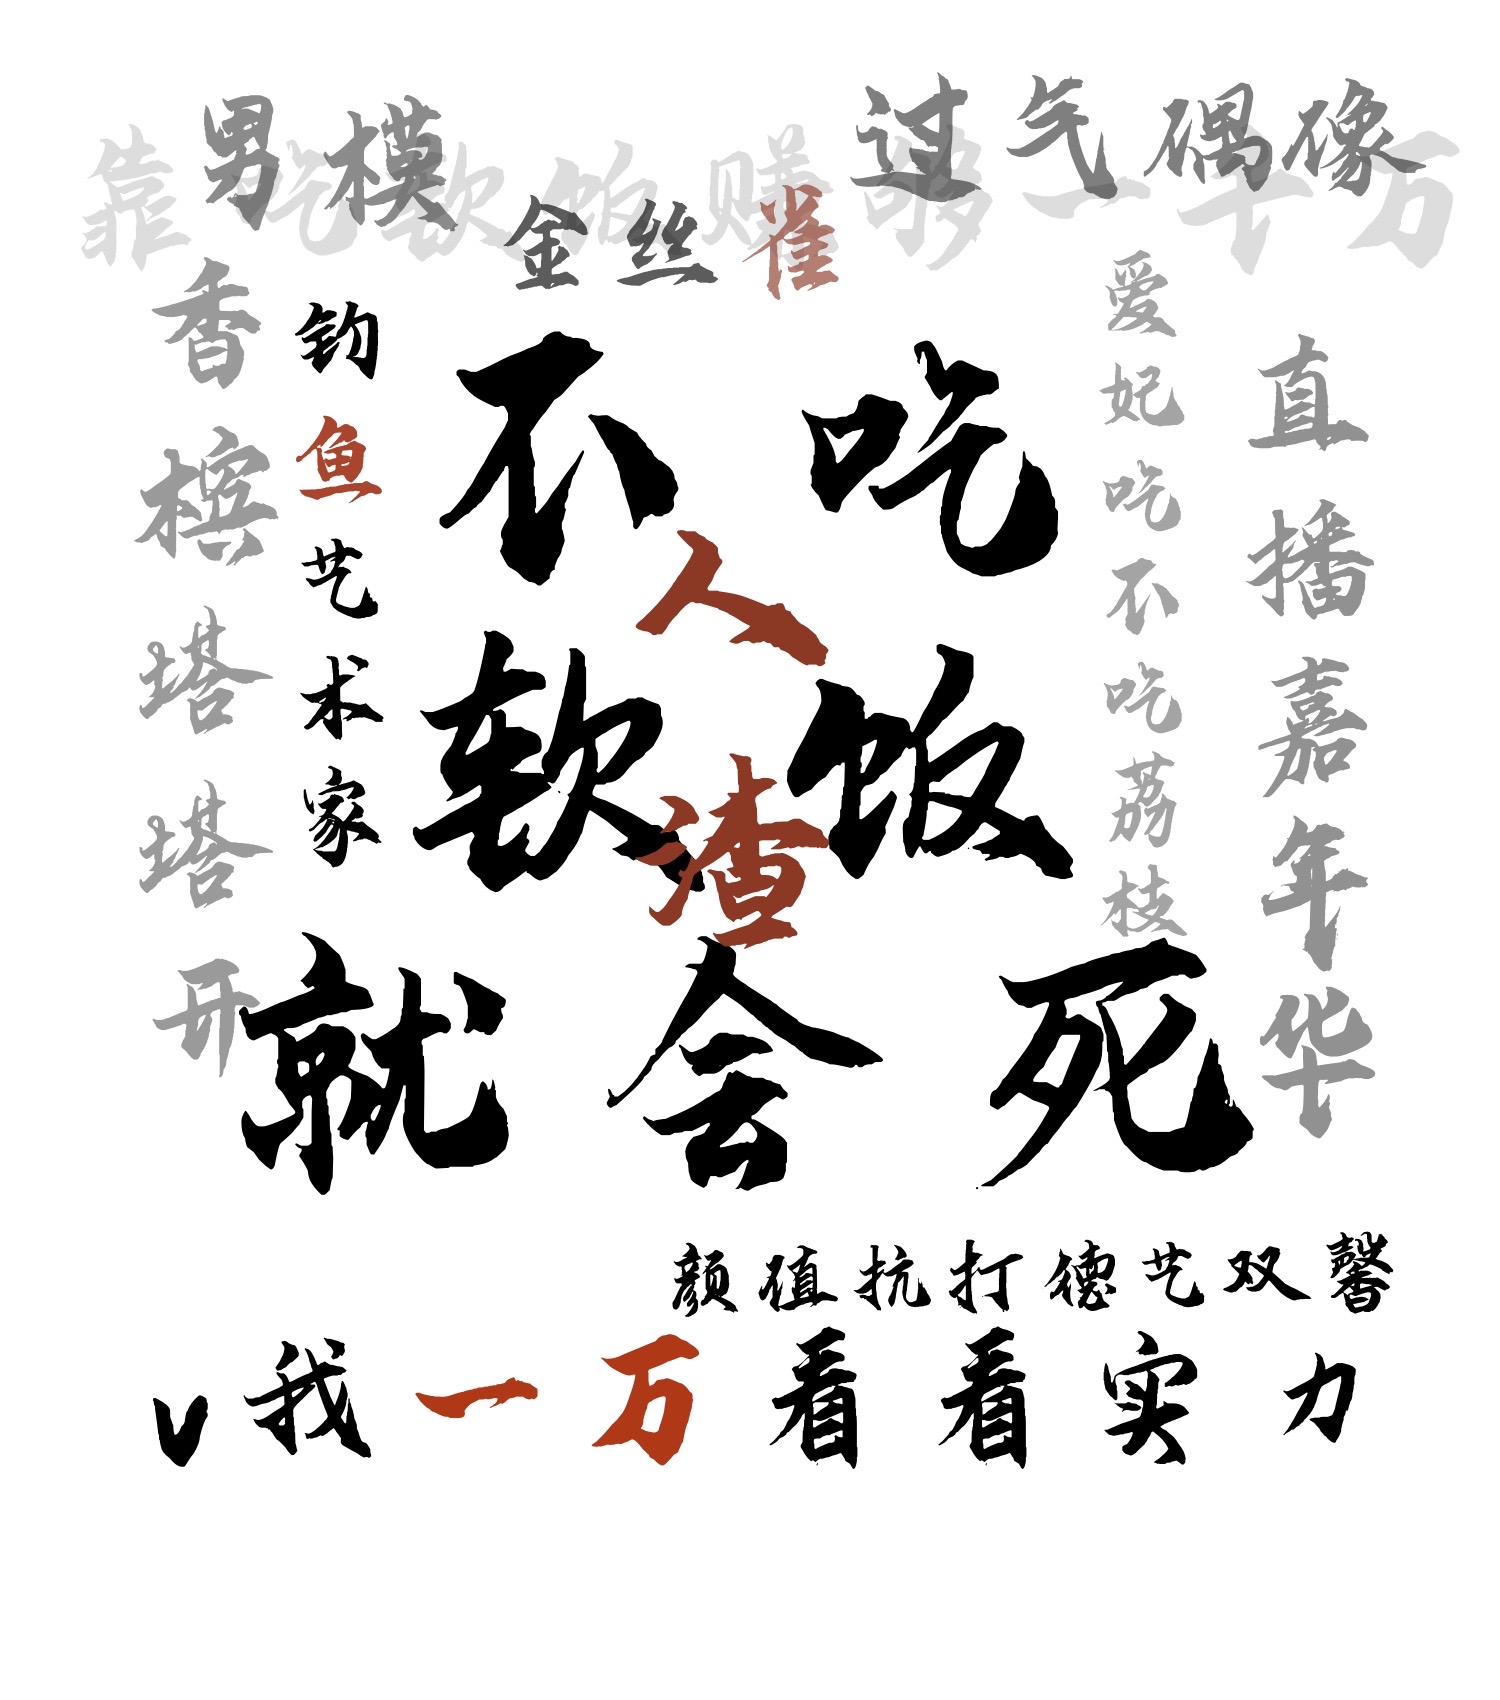 男模
过气偶像
靠吃软饭赚够一千万
金丝雀
香槟塔塔开
钓鱼艺术家
不吃
软饭
就会死
人渣
爱妃吃不吃荔枝
直播嘉年华
颜值抗打德艺双馨
v我一万看看实力